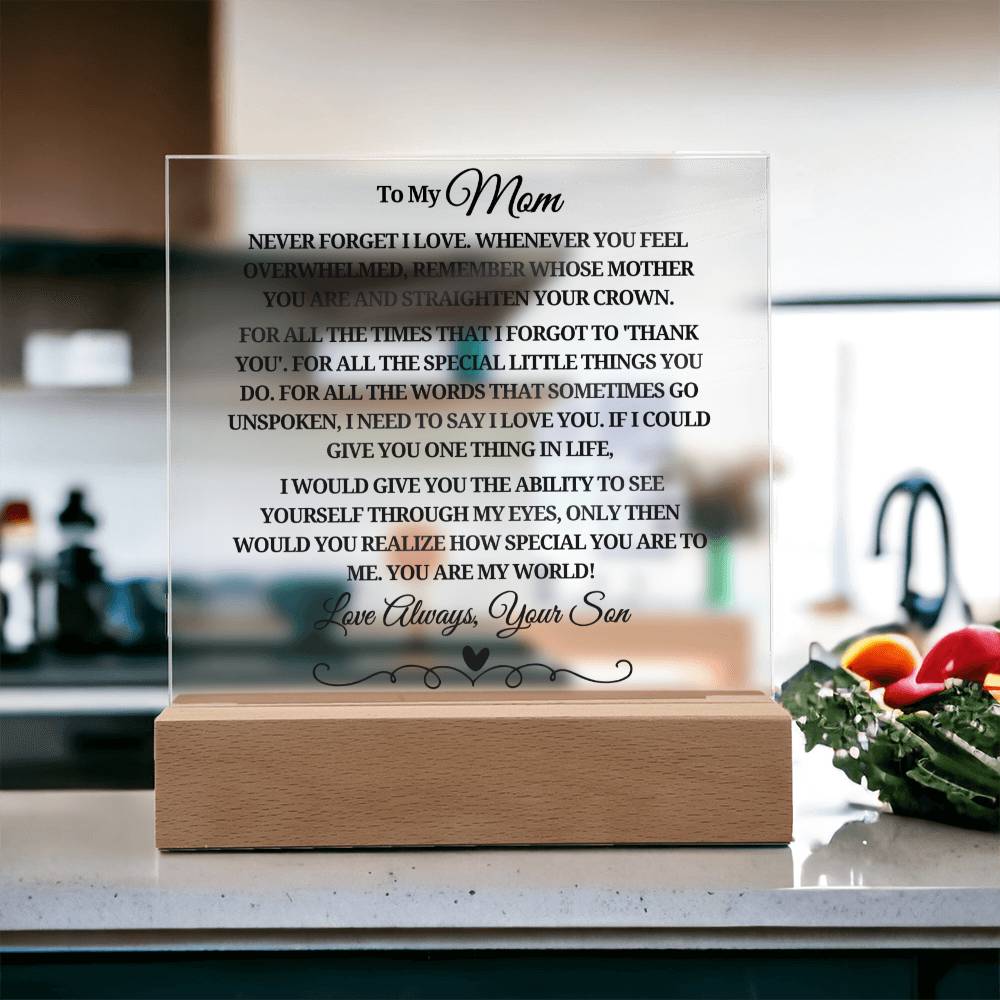 To My Mom
NEVER FORGET I LOVE. WHENEVER YOU FEEL
OVERWHELMED, REMEMBER WHOSE MOTHER
YOU ARE AND STRAIGHTEN YOUR CROWN.
FOR ALL THE TIMES THAT I FORGOT TO 'THANK
YOU'. FOR ALL THE SPECIAL LITTLE THINGS YOU
DO. FOR ALL THE WORDS THAT SOMETIMES GO
UNSPOKEN, I NEED TO SAY I LOVE YOU. IF I COULD
GIVE YOU ONE THING IN LIFE,
I WOULD GIVE YOU THE ABILITY TO SEE
YOURSELF THROUGH MY EYES, ONLY THEN
WOULD YOU REALIZE HOW SPECIAL YOU ARE TO
ME. YOU ARE MY WORLD!
Love Always, Your Son